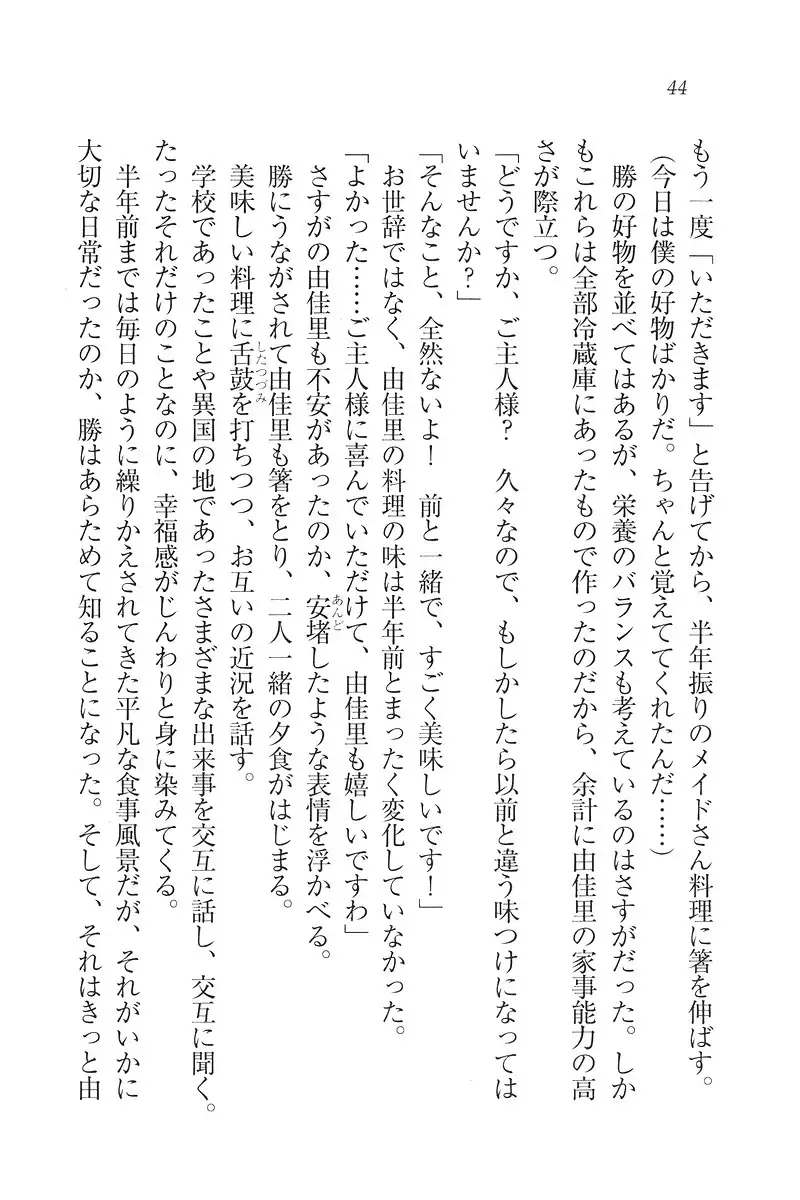 44
もう一度「いただきます」と告げてから、半年振りのメイドさん料理に箸を伸ばす。
（今日は僕の好物ばかりだ。ちゃんと覚えててくれたんだ……）
勝の好物を並べてはあるが、栄養のバランスも考えているのはさすがだった。しか
もこれらは全部冷蔵庫にあったもので作ったのだから、余計に由佳里の家事能力の高
さが際立つ。
「どうですか、ご主人様？　久々なので、もしかしたら以前と違う味つけになっては
いませんか？」
「そんなこと、全然ないよ！　前と一緒で、すごく美味しいです！」
お世辞ではなく、由佳里の料理の味は半年前とまったく変化していなかった。
「よかった……ご主人様に喜んでいただけて、由佳里も嬉しいですわ」
さすがの由佳里も不安があったのか、安堵したような表情を浮かべる。
あんど
勝にうながされて由佳里も箸をとり、二人一緒の夕食がはじまる。
美味しい料理に舌鼓を打ちつつ、お互いの近況を話す。
したつづみ
学校であったことや異国の地であったさまざまな出来事を交互に話し、交互に聞く。
たったそれだけのことなのに、幸福感がじんわりと身に染みてくる。
半年前までは毎日のように繰りかえされてきた平凡な食事風景だが、それがいかに
大切な日常だったのか、勝はあらためて知ることになった。そして、それはきっと由